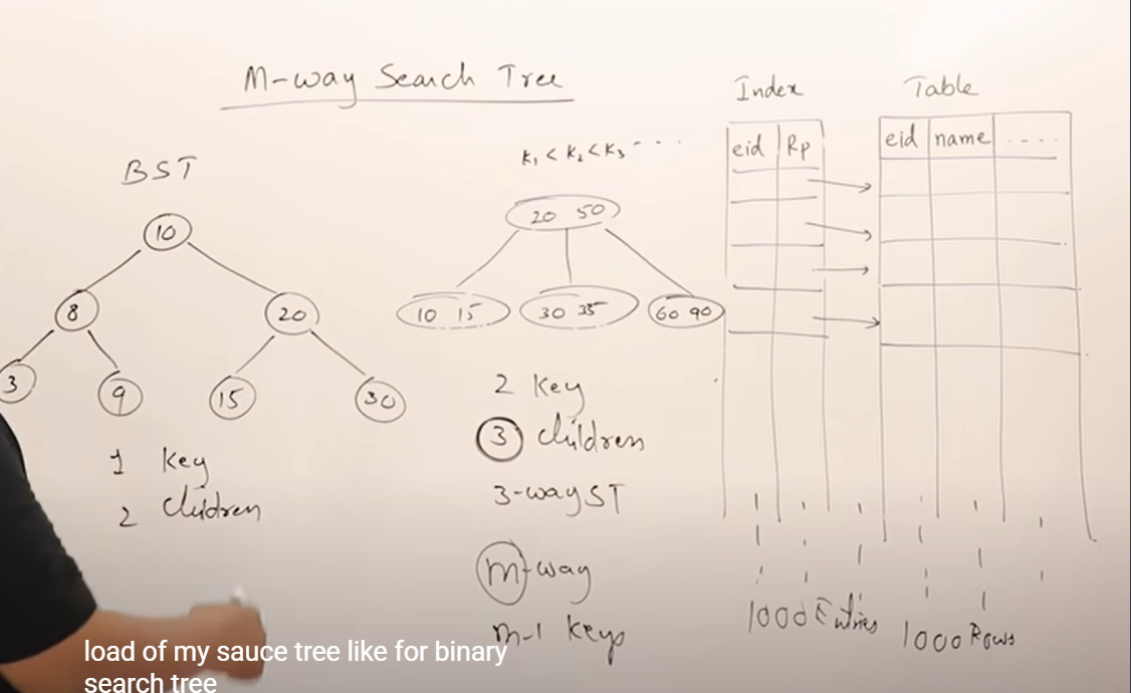 M-way Search Tree
BST
10
8 20
3 9 15 30
1 key
2 children
K₁ < K₂ < K₃ ....
20 50
10 15 30 35 60 90
2 key
3 children
3-way ST
m-way
m-1 keys
Index
eid Rp
1000 Entries
Table
eid name ....
1000 Rows
load of my sauce tree like for binary
search tree